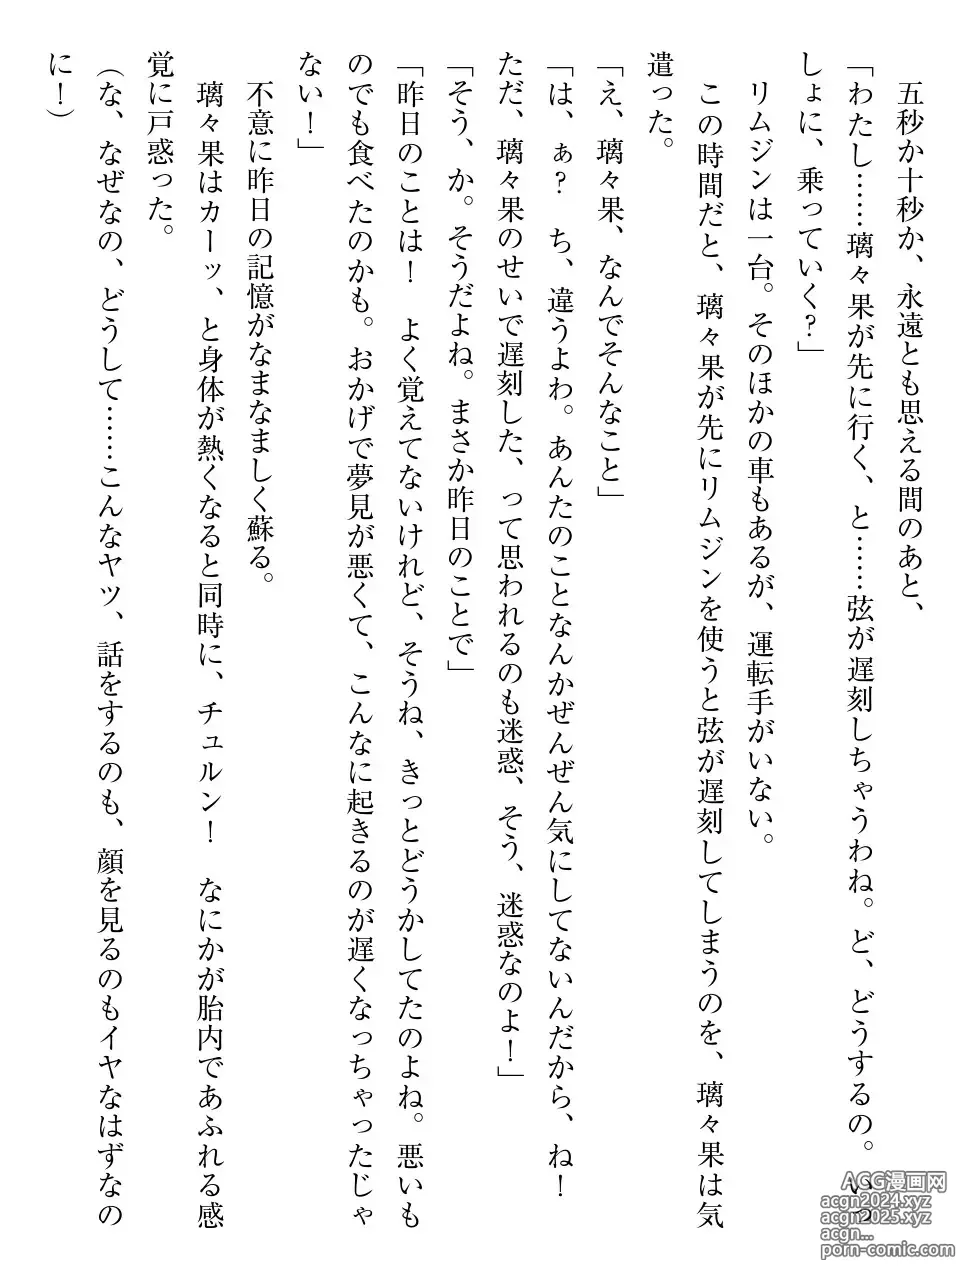 五秒か十秒か、永遠とも思える間のあと、
「わたし……璃々果が先に行く、と……弦が遅刻しちゃうわね。ど、どうするの。いっ
しょに、乗っていく？」
リムジンは一台。そのほかの車もあるが、運転手がいない。
この時間だと、璃々果が先にリムジンを使うと弦が遅刻してしまうのを、璃々果は気
遣った。
「え、璃々果、なんでそんなこと」
「は、ぁ？　ち、違うよわ。あんたのことなんかぜんぜん気にしてないんだから、ね！
ただ、璃々果のせいで遅刻した、って思われるのも迷惑、そう、迷惑なのよ！」
「そう、か。そうだよね。まさか昨日のことで」
「昨日のことは！　よく覚えてないけれど、そうね、きっとどうかしてたのよね。悪いも
のでも食べたのかも。おかげで夢見が悪くて、こんなに起きるのが遅くなっちゃったじゃ
ない！」
不意に昨日の記憶がなまなましく蘇る。
璃々果はカーッ、と身体が熱くなると同時に、チュルン！　なにかが胎内であふれる感
覚に戸惑った。
（な、なぜなの、どうして……こんなヤツ、話をするのも、顔を見るのもイヤなはずなの
に！）
AGG漫画网
acgn2024.xyz
acgn2025.xyz
acgn...
porn-comic.com